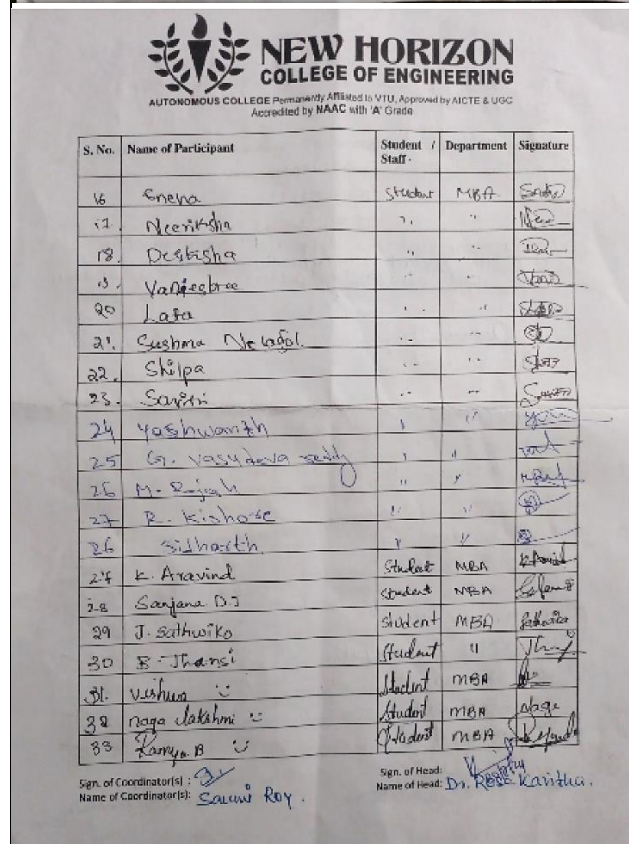 NEW HORIZON
COLLEGE OF ENGINEERING
AUTONOMOUS COLLEGE Permanently Affiliated to VTU, Approved by AICTE & UGC
Accredited by NAAC with 'A' Grade
S. No. Name of Participant Student / Staff Department Signature
16 Sneha Student MBA
17 Neeriksha " "
18. Deekisha " "
19 Vanieshree " "
20 Lata " "
21. Sushma " "
22. Shilpa " "
23. " "
24 Yashwanth " "
25 G. Vasudeva reddy " "
26 M. Rajah " "
27 R. Kishore " "
26 Sidharth " "
27 K. Aravind Student MBA
28 Sanjana D.J Student MBA
29 J. Sathwika Student MBA
30 B. Jhansi Student "
31. Vishwa Student MBA
32 naga lakshmi Student MBA
33 Kamya.B Student MBA
Sign. of Coordinator(s) : Sign. of Head:
Name of Coordinator(s): Roy. Name of Head: Dr. Rose Kavitha.